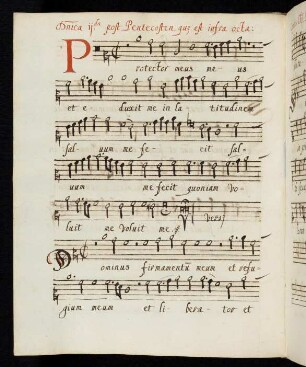 Dnica ijda post Pentecosten que est infra octa:
Protector meus meus
et eduxit me in latitudinem
saluum me fecit sal-
uum me fecit quoniam vo-
luit me voluit me. Versq
Dominus firmamentū meum et refu-
gium meum et liberator et